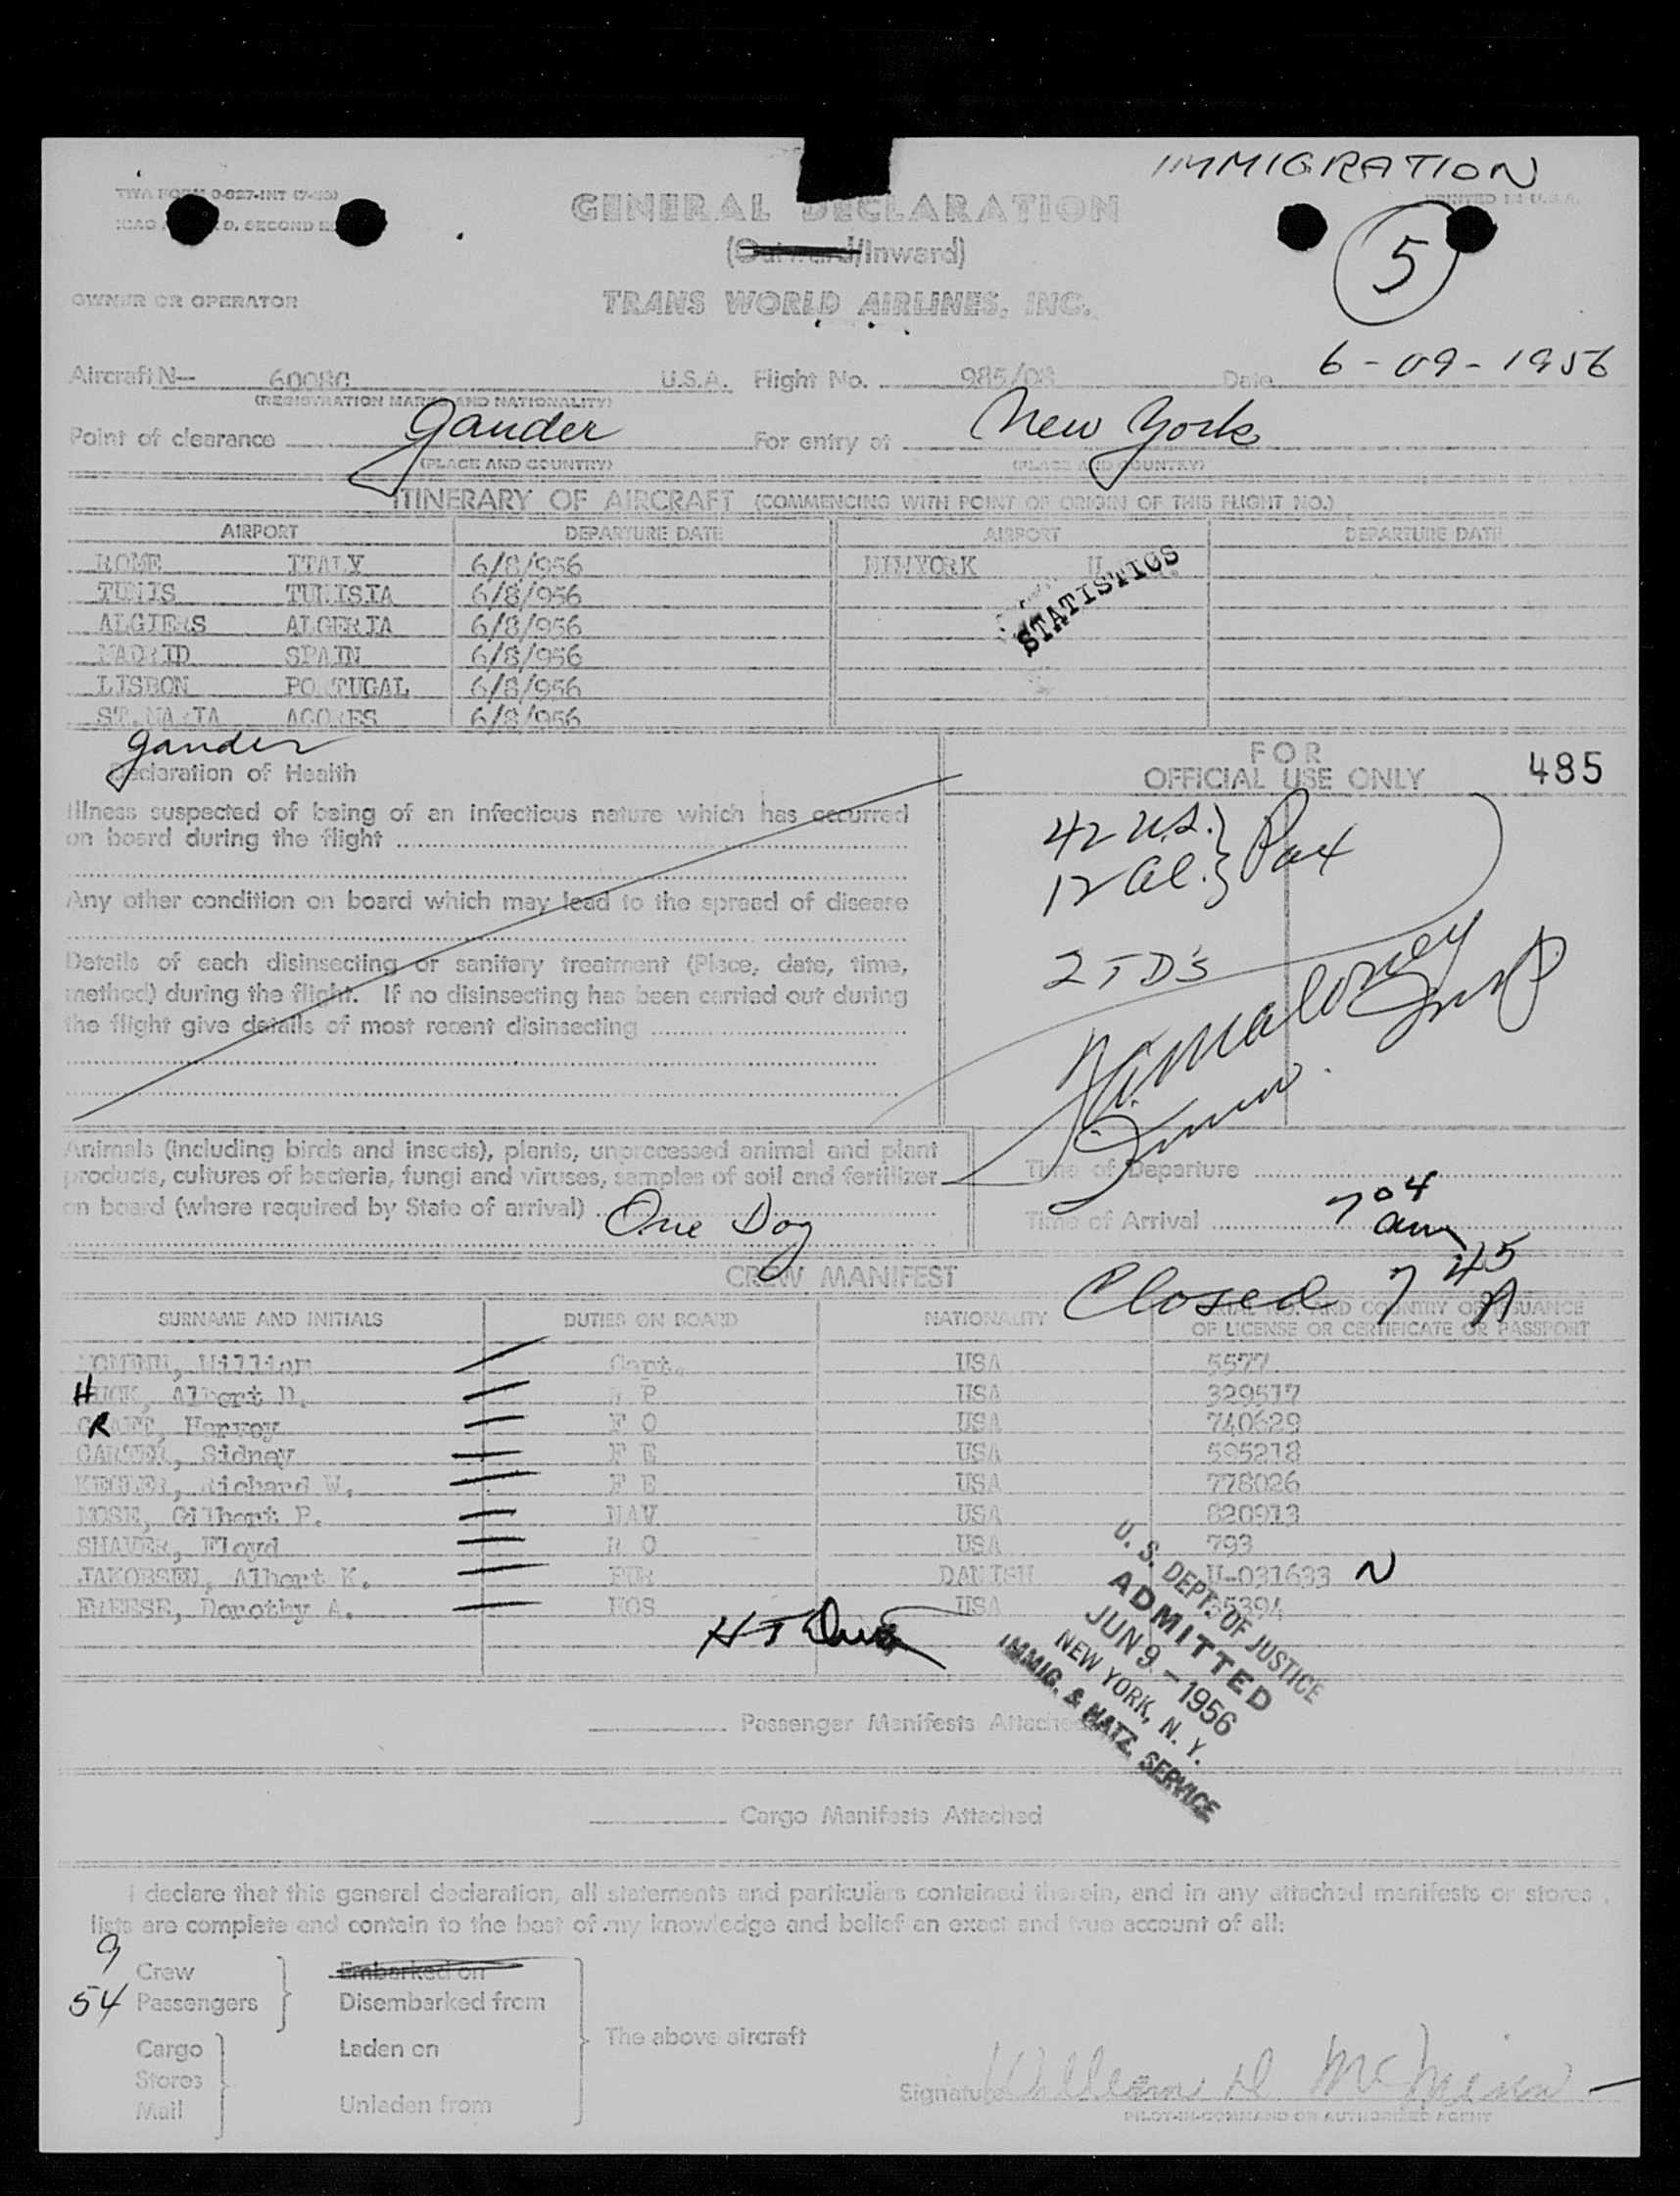 IMMIGRATION
TWA FORM O-827-INT
PRINTED IN U.S.A.
ICAO D, SECOND
GENERAL DECLARATION
(Outward/Inward)
5
OWNER OR OPERATOR
TRANS WORLD AIRLINES, INC.
Aircraft N— 6008C U.S.A. Flight No. 985/08 Date 6-09-1956
(REGISTRATION MARKS AND NATIONALITY)
Point of clearance Gander For entry at New York
(PLACE AND COUNTRY) (PLACE AND COUNTRY)
ITINERARY OF AIRCRAFT (COMMENCING WITH POINT OF ORIGIN OF THIS FLIGHT NO.)
AIRPORT DEPARTURE DATE AIRPORT DEPARTURE DATE
ROME ITALY 6/8/956 NEWYORK
TUNIS TUNISIA 6/8/956
STATISTICS
ALGIERS ALGERIA 6/8/956
MADRID SPAIN 6/8/956
LISBON PORTUGAL 6/8/956
ST.MARIA ACORES 6/8/956
Gander
Declaration of Health
FOR
OFFICIAL USE ONLY 485
Illness suspected of being of an infectious nature which has occurred
on board during the flight
42 U.S. } Pax
12 Al. }
Any other condition on board which may lead to the spread of disease
2 TD's
Details of each disinsecting or sanitary treatment (Place, date, time,
method) during the flight. If no disinsecting has been carried out during
the flight give details of most recent disinsecting
Maloney
Animals (including birds and insects), plants, unprocessed animal and plant
products, cultures of bacteria, fungi and viruses, samples of soil and fertilizer
on board (where required by State of arrival) One Dog
Time of Departure
Time of Arrival 7 04 am
CREW MANIFEST
Closed 7 45 A
SURNAME AND INITIALS DUTIES ON BOARD NATIONALITY AND COUNTRY OF ISSUANCE
OF LICENSE OR CERTIFICATE OR PASSPORT
William Capt. USA 5577
HUCK, Albert D. USA 329517
R Harvey F O USA 740629
CARTER, Sidney F E USA 595218
Richard W. F E USA 778026
Gilbert P. NAV USA 820913
SHAVER, Floyd R O USA 793
JAKOBSEN, Albert K. PUR DANISH U-031633 N
Dorothy A. HOS USA 5394
U. S. DEPT. OF JUSTICE
ADMITTED
JUN 9 - 1956
NEW YORK, N. Y.
IMMIG. & NATZ. SERVICE
Passenger Manifests Attached
Cargo Manifests Attached
I declare that this general declaration, all statements and particulars contained therein, and in any attached manifests or stores
lists are complete and contain to the best of my knowledge and belief an exact and true account of all:
9 Crew Embarked on
54 Passengers Disembarked from
The above aircraft
Cargo Laden on
Stores
Mail Unladen from
Signature William D.
PILOT-IN-COMMAND OR AUTHORIZED AGENT